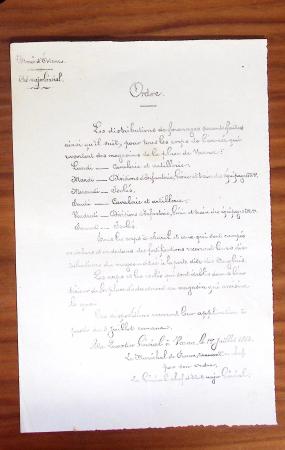 Armée d'Orient.
État-major Général.
Ordre.
Les distributions de fourrages seront faites
ainsi qu'il suit, pour tous les corps de l'armée qui
ressortent des magasins de la place de Varna:
Lundi — Cavalerie et artillerie.
Mardi — Divisions d'Infanterie, Génie et train des équipages
Mercredi — Isolés.
Jeudi — Cavalerie et artillerie.
Vendredi — Divisions d'Infanterie, Génie et train des équipages
Samedi — Isolés.
Tous les corps à cheval et ceux qui sont campés
en dehors des fortifications recevront leurs
distributions du magasin situé à la porte dite des
Les corps et les isolés qui sont établis dans
de la place au magasin qui avoisine
le quai.
Ces dispositions recevront leur application à
partir du juillet courant.
Au Quartier Général à Varna, le juillet 1854.
Le Maréchal de France, en chef
par son ordre,
Le Général, chef d'État major Général,